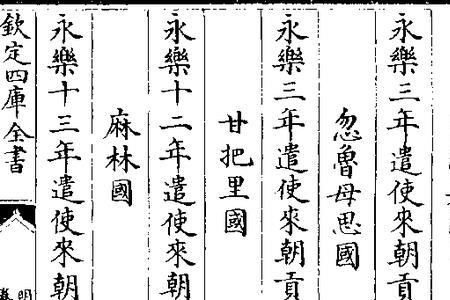 永樂三年遣使來朝貢
忽魯母思國
永樂三年遣使來朝貢
甘把里國
永樂十二年遣使來朝
麻林國
永樂十三年遣使來朝
欽定四庫全書